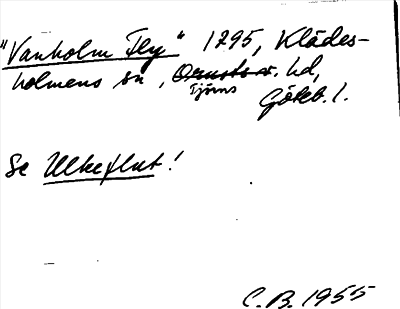 "Vanholm Fly" 1795, Klädes-
holmens sn, Orusts v. hd,
Tjörns
Göteb. l.
Se Ulkeflut!
C.B. 1955